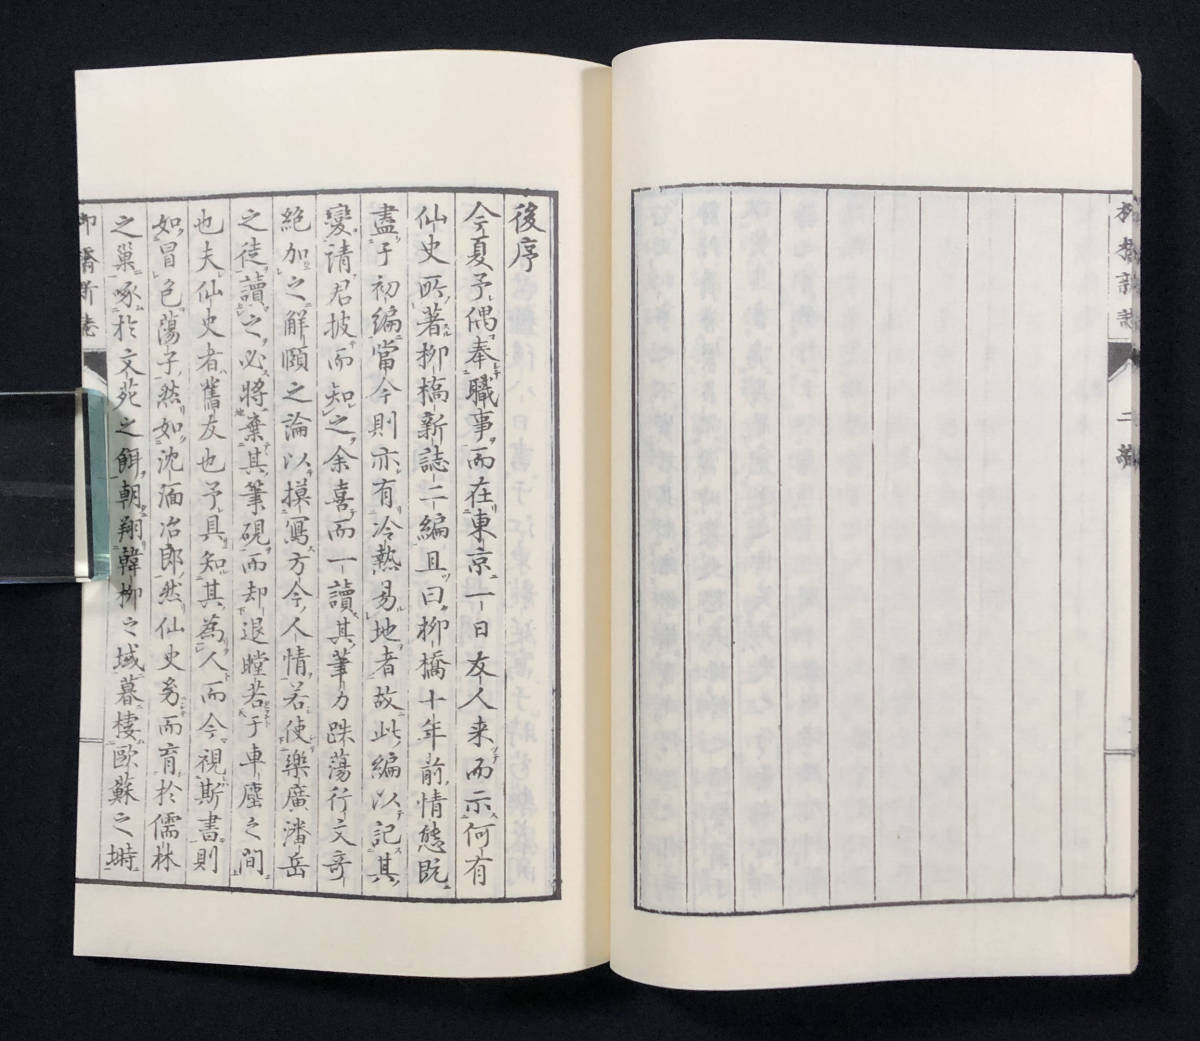 柳橋新誌
二編
後序
今夏予偶奉職事而在東京一日友人来而示何有
仙史所著柳橋新誌二編且曰柳橋十年前情態既
盡于初編當今則亦有冷熱易地者故此編以記其
變請君披而知之余喜而一讀其筆力跌蕩行文奇
絶加之解頤之論以摸寫方今人情若使樂廣潘岳
之徒讀之必將棄其筆硯而却退瞠若于車塵之間
也夫仙史者舊友也予具知其為人而今視斯書則
如冒色蕩子然如沈湎冶郎然仙史㓜而育於儒林
之巢啄於文苑之餌朝翔韓柳之域暮棲歐蘇之塒
柳橋新誌